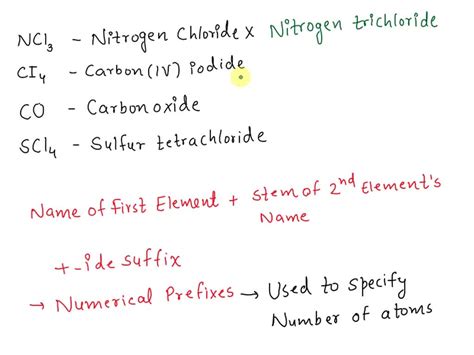 NCl3 - Nitrogen Chloride x Nitrogen trichloride
CI4 - Carbon(IV) iodide
CO - Carbon oxide
SCl4 - Sulfur tetrachloride
Name of First Element + Stem of 2nd Element's
Name
+ -ide suffix
→ Numerical Prefixes → Used to specify
Number of atoms